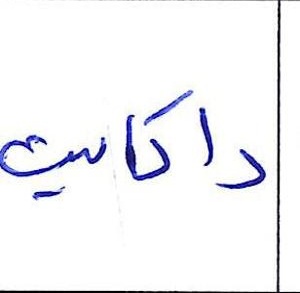 دا كاسب